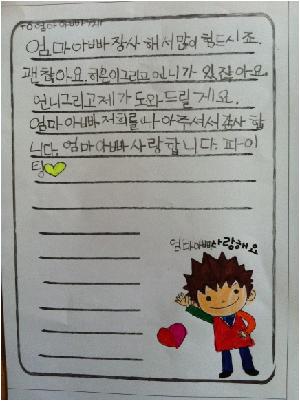 TO 엄마 아빠께
엄마 아빠 장사 해서 많이 힘드시죠.
괜찮아요. 하은이그리고 언니가 있잖아요.
언니그리고 제가 도와드릴게요.
엄마 아빠 저희를 나아주셔서 감사 합
니다. 엄마 아빠 사랑합니다. 파이
팅
엄마아빠사랑해요